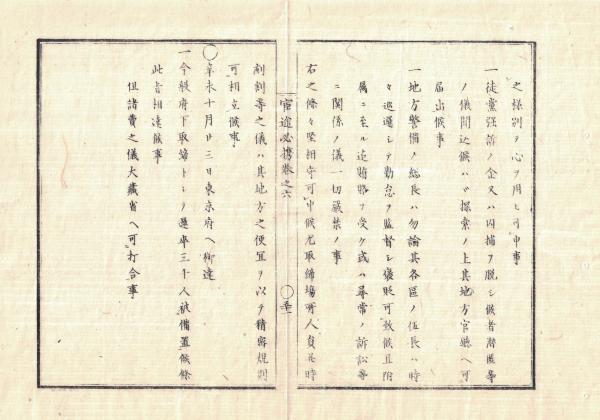 之様別ヲ心ヲ用ヒ可申事
一徒黨強訴ノ企又ハ囚捕ヲ脱シ候者潜匿等
ノ儀聞込候ハヾ探索ノ上其地方官廳ヘ可
届出候事
一地方警備ノ総長ハ勿論其各區ノ伍長ハ時
々巡邏シテ勤怠ヲ監督シ褒貶可致候且附
属ニ至ル迄賄賂ヲ受ケ或ハ尋常ノ訴訟等
ニ関係ノ儀一切厳禁ノ事
右之條々堅相守可申候尤取締場所人員並時
官途必携巻之六
刻割等之儀ハ其地方之便宜ヲ以テ精密規則
可相立候事
〇辛未十月廿三日東京府ヘ御達
一今般府下取締トシテ邏卒三千人被備置候條
此旨相達候事
但諸費之儀大蔵省ヘ可打合事